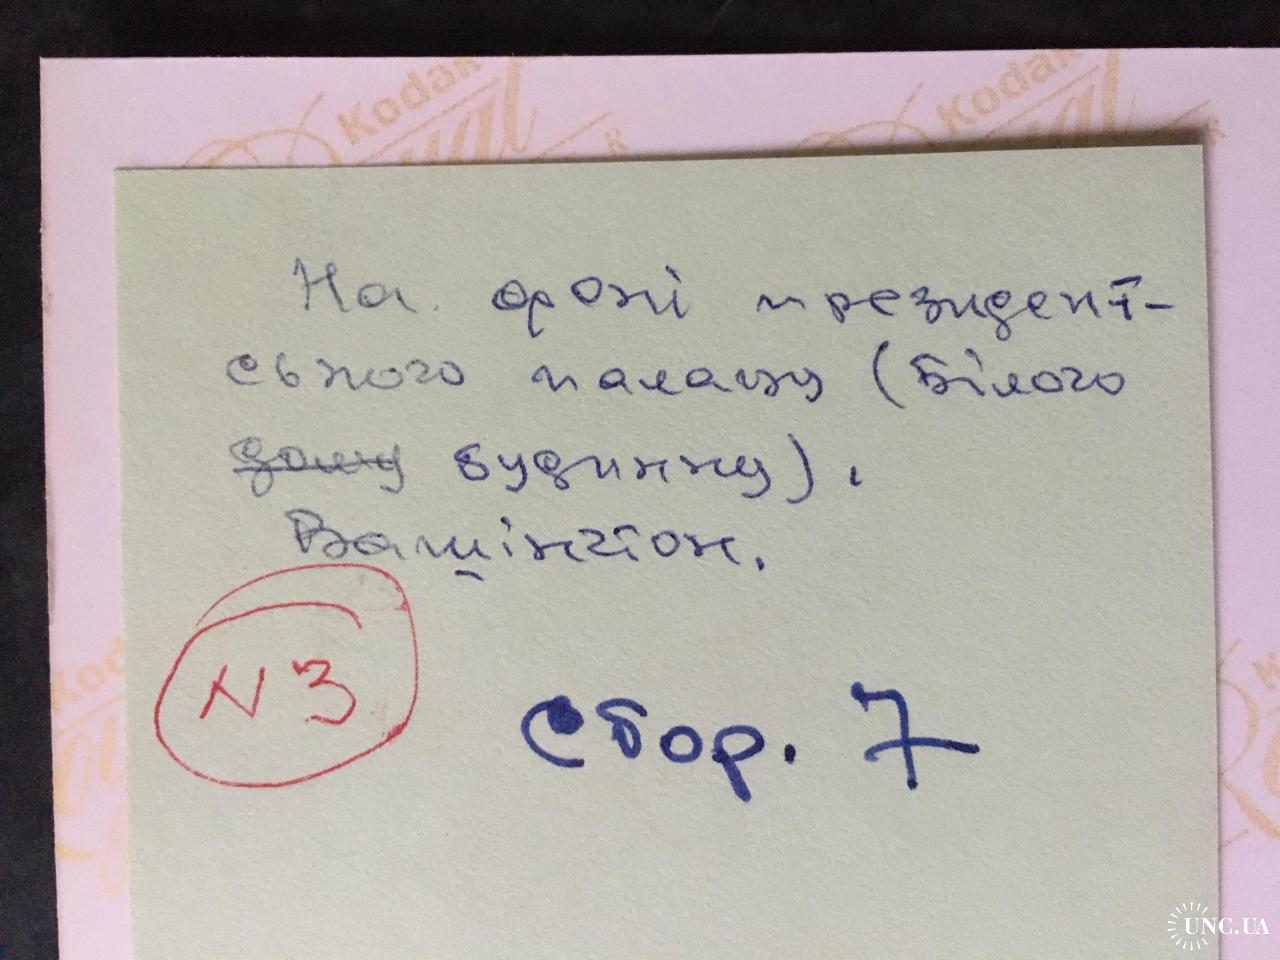 Kodak
Royal
Kodak
Royal
На фоні президент-
ського палацу (Білого
дому будинку).
Вашінгтон.
N 3
стор. 7
UNC.UA